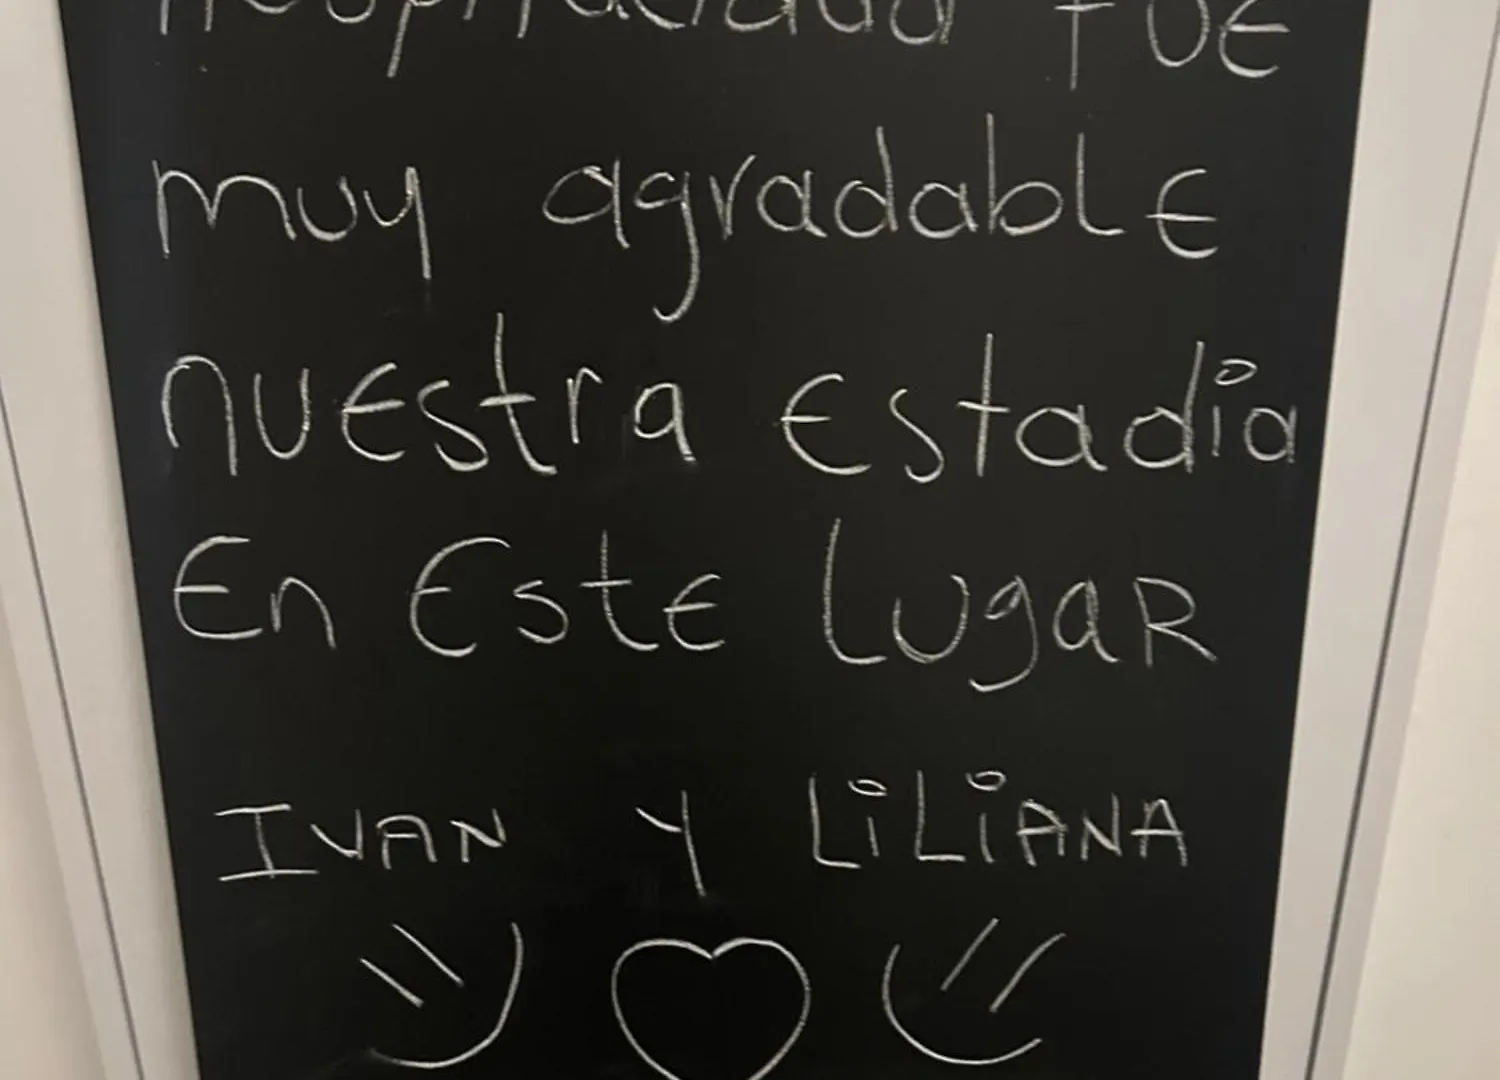 hospitalidad FUE
muy agradablE
nuEstra Estadia
En EstE LugaR
IVAN Y LiLiANA